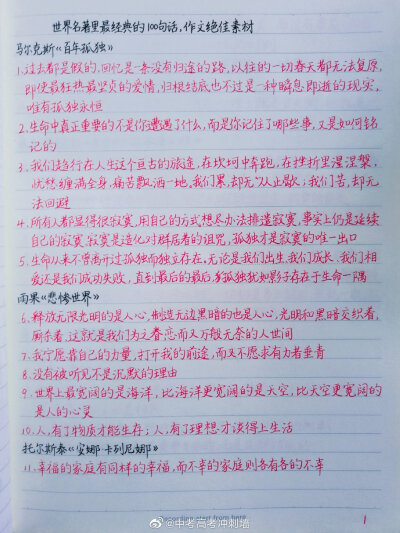 世界名著里最经典的100句话,作文绝佳素材
马尔克斯《百年孤独》
1.过去都是假的,回忆是一条没有归途的路,以往的一切春天都无法复原,
即使最狂热最坚贞的爱情,归根结底也不过是一种瞬息即逝的现实,
唯有孤独永恒
2.生命中真正重要的不是你遭遇了什么,而是你记住了哪些事,又是如何铭
记的
3.我们趋行在人生这个亘古的旅途,在坎坷中奔跑,在挫折里涅槃,
忧愁缠满全身,痛苦飘洒一地,我们累,却无从止歇;我们苦,却无
法回避
4.所有人都显得很寂寞,用自己的方式想尽办法排遣寂寞,事实上仍是延续
自己的寂寞,寂寞是造化对群居者的诅咒,孤独才是寂寞的唯一出口
5.生命从来不曾离开过孤独而独立存在,无论是我们出生,我们成长,我们相
爱还是我们成功失败,直到最后的最后,孤独犹如影子存在于生命一隅
雨果《悲惨世界》
6.释放无限光明的是人心,制造无边黑暗的也是人心,光明和黑暗交织着,
厮杀着,这就是我们为之眷恋而又万般无奈的人世间
7.我宁愿靠自己的力量,打开我的前途,而又不愿求有力者垂青
8.没有被听见不是沉默的理由
9.世界上最宽阔的是海洋,比海洋更宽阔的是天空,比天空更宽阔的
是人的心灵
10.人,有了物质才能生存;人,有了理想才谈得上生活
托尔斯泰《安娜·卡列尼娜》
11.幸福的家庭有同样的幸福,而不幸的家庭则各有各的不幸
start from here
1
@中考高考冲刺墙